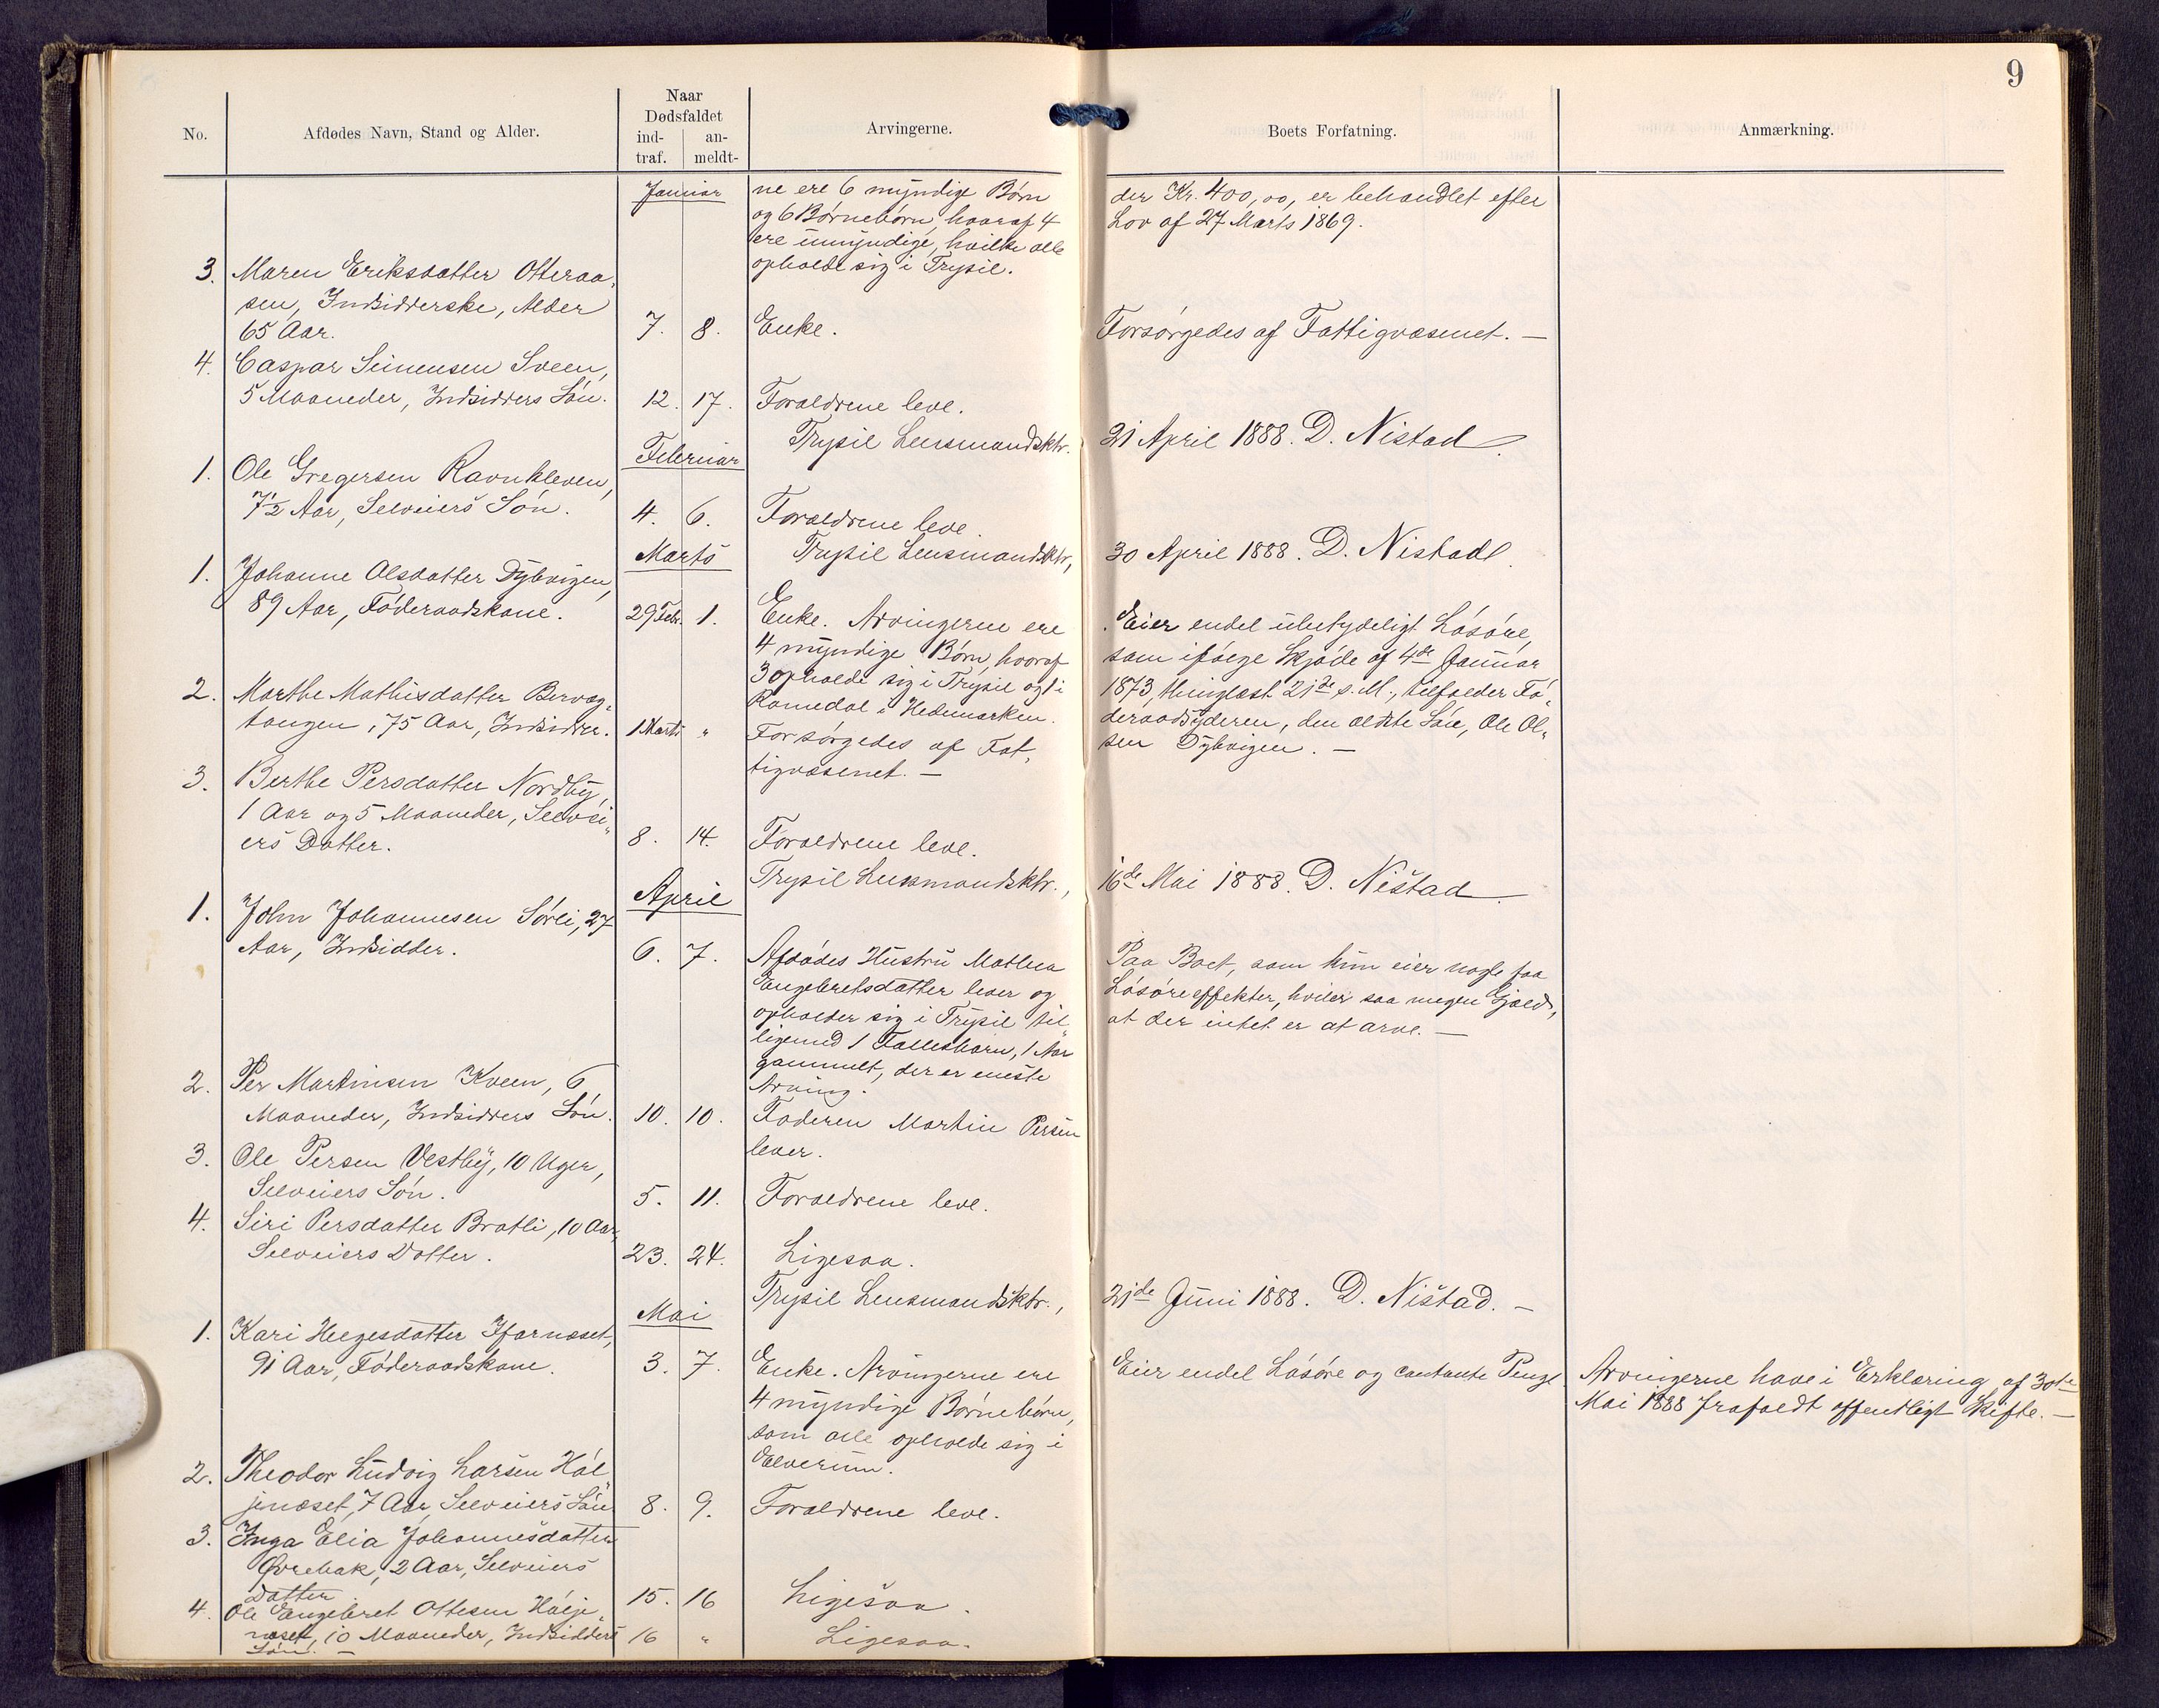 9
No.
Afdødes Navn, Stand og Alder.
Naar
Dødsfaldet
ind-
traf.
an-
meldt-
Arvingerne.
Boets Forfatning.
Anmærkning.
Januar
ne ere 6 myndige Børn
og 6 Børnebørn, hvoraf 4
ere umyndige, hvilke alle
opholde sig i Trysil.
der Kr. 400,00, er behandlet efter
Lov af 27 Marts 1869.
3. Maren Eriksdatter Otteraa-
sen, Indsidderske, Alder
65 Aar. 7. 8. Enke. Forsørgedes af Fattigvæsenet. —
4. Caspar Simensen Sveen,
5 Maaneder, Indsidders Søn. 12. 17. Forældrene leve.
Trysil Lensmandsktr. 21 April 1888. D. Nistad.
Februar
1. Ole Gregersen Ravnkleven,
7½ Aar, Selveiers Søn. 4. 6. Forældrene leve.
Trysil Lensmandsktr, 30 April 1888. D. Nistad.
Marts
1. Johanne Olsdatter Dybvigen,
89 Aar, Føderaadskone. 29 Febr. 1. Enke. Arvingerne ere
4 myndige Børn, hvoraf
3 opholde sig i Trysil og 1 i
Romedal i Hedemarken.
Eier endel ubetydeligt Løsøre,
som ifølge Skjøde af 4de Januar
1873, thinglæst 21de s. M., tilfalder Fø-
deraadsyderen, den ældste Søn, Ole Ol-
sen Dybvigen. —
2. Marthe Mathisdatter Bervæg-
tangen, 75 Aar, Indsidder. 1 Marts " Forsørgedes af Fat-
tigvæsenet. —
3. Berthe Persdatter Nordby,
1 Aar og 5 Maaneder, Selvei-
ers Datter. 8. 14. Forældrene leve.
Trysil Lensmandsktr., 16de Mai 1888. D. Nistad.
April
1. John Johannesen Sørli, 27
Aar, Indsidder. 6. 7. Afdødes Hustru Mathea
Engebretsdatter lever og
opholder sig i Trysil til-
ligemed 1 Fællesbarn, 1 Aar
gammelt, der er eneste
Arving.
Paa Boet, som kun eier nogle faa
Løsøreeffekter, hviler saa megen Gjæld,
at der intet er at arve. —
2. Per Martinsen Kveen, 6
Maaneder, Indsidders Søn. 10. 10. Faderen Martin Persen
lever.
3. Ole Persen Vestby, 10 Uger,
Selveiers Søn. 5. 11. Forældrene leve.
4. Siri Persdatter Bratli, 10 Aar,
Selveiers Datter. 23. 24. Ligesaa.
Trysil Lensmandsktr., 21de Juni 1888. D. Nistad. —
Mai
1. Kari Helgesdatter Ifarnæset,
91 Aar, Føderaadskone. 3. 7. Enke. Arvingerne ere
4 myndige Børnebørn,
som alle opholde sig i
Elverum.
Eier endel Løsøre og contante Penge
Arvingerne have i Erklæring af 30te
Mai 1888 frafaldt offentligt Skifte. —
2. Theodor Ludvig Larsen Høl-
jenæset, 7 Aar, Selveiers Søn 8. 9. Forældrene leve.
3. Inga Elia Johannesdatter
Øvrebak, 2 Aar, Selveiers
Datter 15. 16 Ligesaa.
4. Ole Engebret Ottesen Hølje-
næset, 10 Maaneder, Indsidders 16 " Ligesaa.
Søn. —